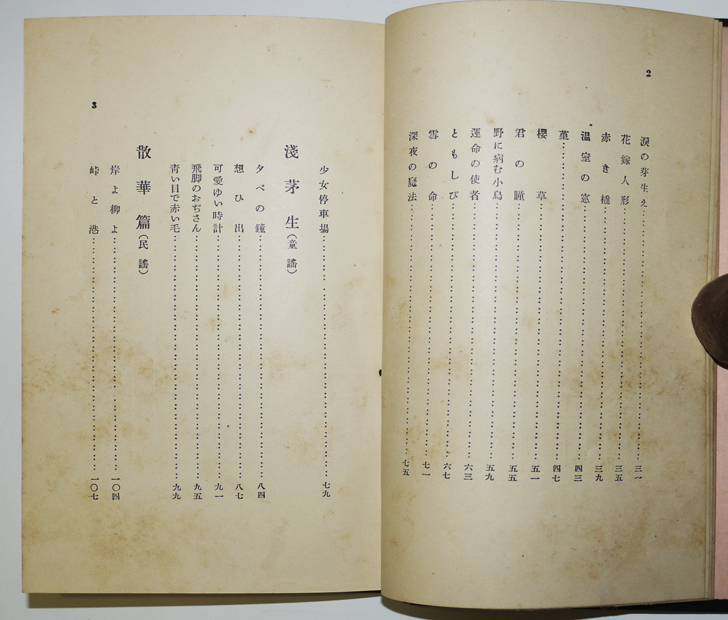 2
涙の芽生え……三一
花嫁人形……三五
赤き橇……三九
温室の窓……四三
菫……四七
櫻草……五一
君の瞳……五五
野に病む小鳥……五九
運命の使者……六三
ともしび……六七
雲の命……七一
深夜の魔法……七五
少女停車場……七九
淺茅生(童謠)
夕べの鐘……八四
想ひ出……八七
可愛ゆい時計……九一
飛脚のおぢさん……九五
青い目で赤い毛……九九
散華篇(民謠)
岸よ柳よ……一〇四
峠と港……一〇七
3